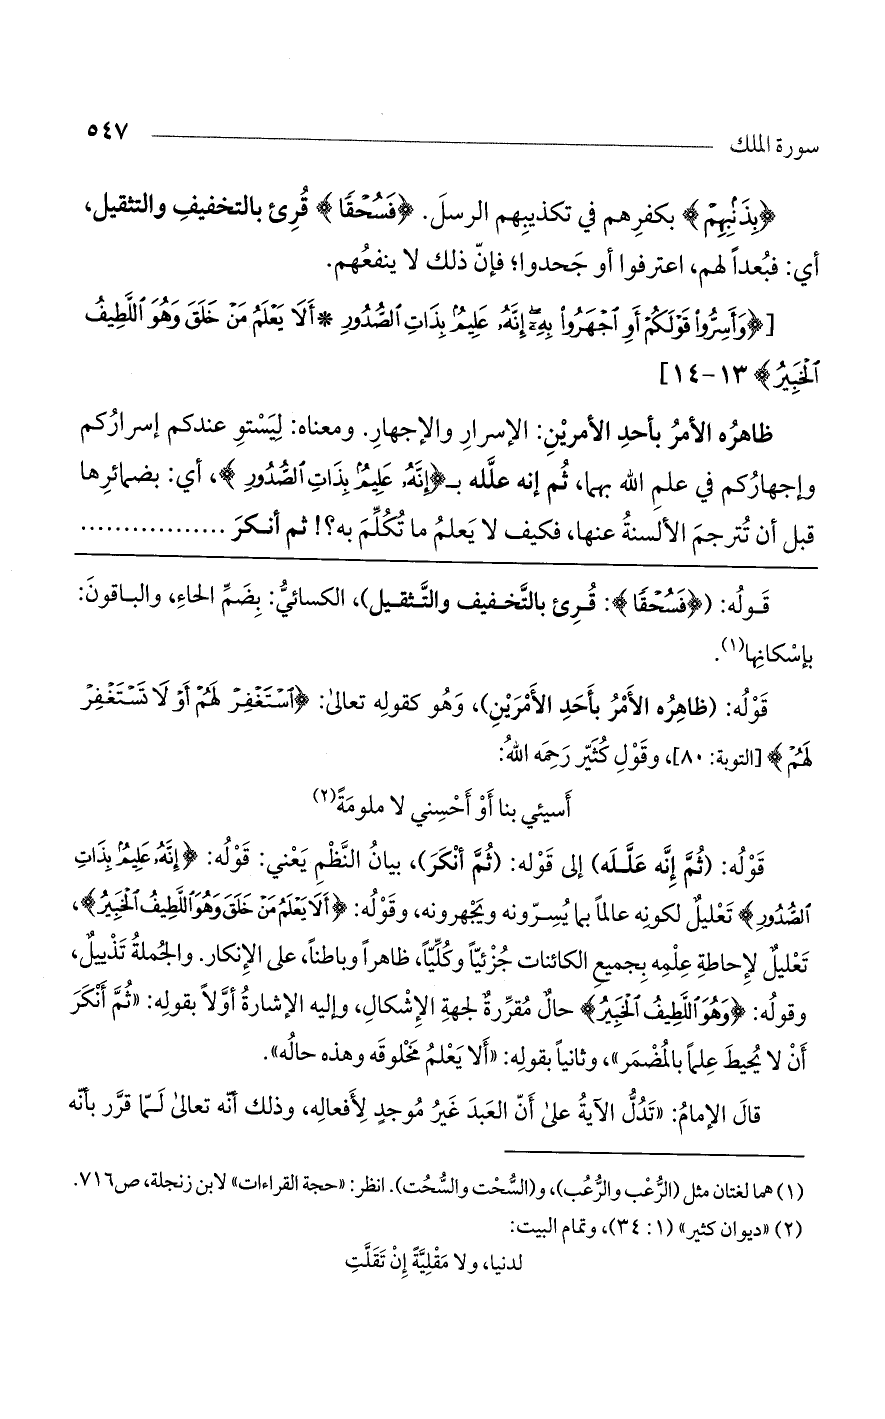 سورة الملك ٥٤٧
﴿بِذَنۢبِهِمْ﴾ بكفرِهم في تكذيبِهم الرسلَ. ﴿فَسُحْقًا﴾ قُرِئ بالتخفيفِ والتثقيل،
أي: فبُعداً لهم، اعترفوا أو جَحدوا؛ فإنّ ذلك لا ينفعُهم.
[﴿وَأَسِرُّوا۟ قَوْلَكُمْ أَوِ ٱجْهَرُوا۟ بِهِۦٓ إِنَّهُۥ عَلِيمٌۢ بِذَاتِ ٱلصُّدُورِ * أَلَا يَعْلَمُ مَنْ خَلَقَ وَهُوَ ٱللَّطِيفُ
ٱلْخَبِيرُ﴾ ١٣-١٤]
ظاهرُه الأمرُ بأحدِ الأمريْنِ: الإسرارِ والإجهارِ. ومعناه: لِيَسْتوِ عندكم إسرارُكم
وإجهارُكم في علمِ الله بهما، ثُم إنه علَّله بـ﴿إِنَّهُۥ عَلِيمٌۢ بِذَاتِ ٱلصُّدُورِ﴾، أي: بضمائرِها
قبل أن تُترجمَ الألسنةُ عنها، فكيف لا يَعلمُ ما تُكُلِّمَ به؟! ثم أنكرَ ................
قَولُه: (﴿فَسُحْقًا﴾: قُرِئ بالتَّخفيف والتَّثقيل)، الكسائيُّ: بِضَمِّ الحاءِ، والباقونَ:
بإسْكانِها(١).
قَوْلُه: (ظاهِرُه الأمْرُ بأَحَدِ الأمْرَيْنِ)، وَهُو كقولِه تعالىٰ: ﴿ٱسْتَغْفِرْ لَهُمْ أَوْ لَا تَسْتَغْفِرْ
لَهُمْ﴾ [التوبة: ٨٠]، وقَوْلِ كُثَيّر رَحِمَه اللهُ:
أَسيئي بنا أَوْ أَحْسِني لا ملومَةً(٢)
قَوْلُه: (ثُمَّ إِنَّه عَلَّـلَه) إلى قَوْلِه: (ثُمَّ أنْكَرَ)، بيانُ النَّظْمِ يَعْني: قَوْلُه: ﴿إِنَّهُۥ عَلِيمٌۢ بِذَاتِ
ٱلصُّدُورِ﴾ تَعْليلٌ لكونِه عالماً بما يُسِرّونه ويَجْهرونه، وقَوْلُه: ﴿أَلَا يَعْلَمُ مَنْ خَلَقَ وَهُوَ ٱللَّطِيفُ ٱلْخَبِيرُ﴾،
تَعْليلٌ لإحاطةِ عِلْمِه بِجميعِ الكائنات جُزْئيّاً وكُلّيّاً، ظاهراً وباطناً، على الإنكار. والجُملةُ تَذْييلٌ،
وقولُه: ﴿وَهُوَ ٱللَّطِيفُ ٱلْخَبِيرُ﴾ حالٌ مُقرِّرةٌ لجهةِ الإشكالِ، وإليه الإشارةُ أوَّلاً بقولِه: «ثُمَّ أَنْكَرَ
أَنْ لا يُحيطَ عِلماً بالمُضْمَر»، وثانياً بقولِه: «ألا يَعْلمُ مخْلوقَه وهذه حالُه».
قالَ الإمامُ: «تَدُلُّ الآيةُ علىٰ أنّ العبدَ غَيرُ مُوجدٍ لِأفعالِه، وذلك أنّه تعالىٰ لَـمّا قرَّر بأنّه
(١) هما لغتان مثل (الرُّعْب والرُّعُب)، و(السُّحْت والسُّحُت). انظر: «حجة القراءات» لابن زنجلة، ص٧١٦.
(٢) «ديوان كثير» (١: ٣٤)، وتمام البيت:
لدنيا، ولا مَقْلِيَّةً إِنْ تَقَلَّتِ